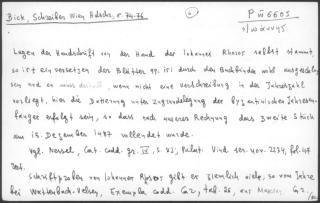 Bick, Schreiber Wien. Hdschr., n. 74-76
P III 6605
Ἰωάννης
Lagen der Handschrift von der Hand der Iohannes Rhosos selbst stammt,
so ist ein versetzen des Blattes 99. ist durch den Buchbinder wohl ausgeschlos-
sen und es muss, wenn nicht eine Verschreibung in der Jahreszahl
vorliegt, hier die Datierung unter Zugrundelegung der byzantinischen Jahresan-
fänge erfolgt sein, so dass nach unserer Rechnung das zweite Stück
am 15. Dezember 1487 vollendet wurde.
Vgl. Nessel, Cat. codd. gr. IV, S. Vind. nov. 2234, fol. 147
Schriftproben von Iohannes Rhosos gibt es ziemlich viele, so vom Jahre
bei Wattenbach-Velsen, Exempla codd. Gr., tab. 26, aus